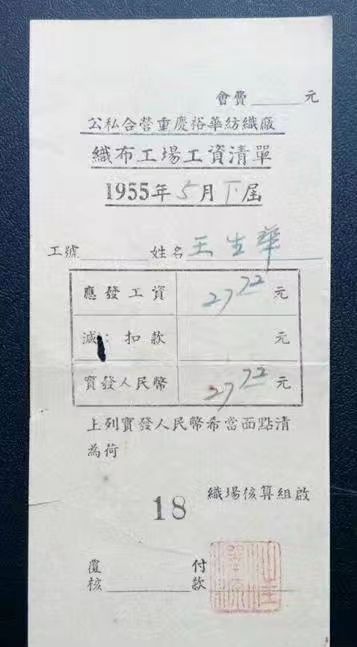 會費____元
公私合營重慶裕華紡織廠
織布工場工資清單
1955年5月下屆
工號______姓名王生華
應發工資 27.72元
減：扣款 元
實發人民幣 27.72元
上列實發人民幣希當面點清
為荷
織場核算組啟
18
覆核______付款